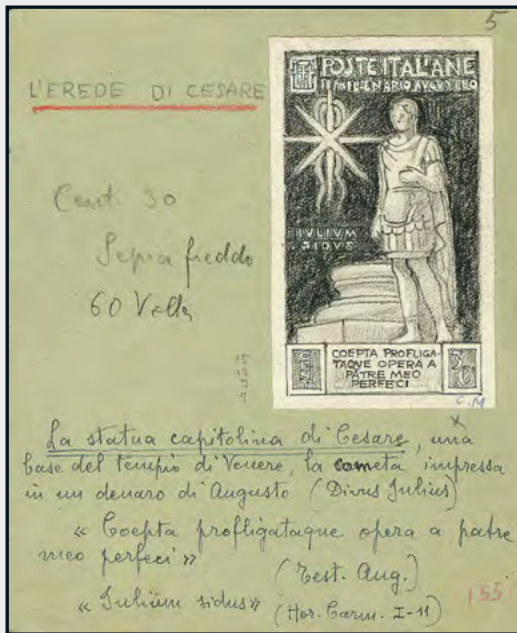 5
L'EREDE DI CESARE
POSTE ITALIANE
II MILLENARIO AVGVSTEO
IVLIVM
SIDVS
CENT
COEPTA PROFLIGA-
TAQVE OPERA A
PATRE MEO
PERFECI
30
C.M
Cent. 30
Sepia freddo
60 Volta
La statua capitolina di Cesare, una
base del tempio di Venere, la cometa impressa
in un denaro di Augusto (Divus Julius)
« Coepta profligataque opera a patre
meo perfeci »
(Test. Aug.)
« Julium sidus » (Hor. Carm. I-11)
155